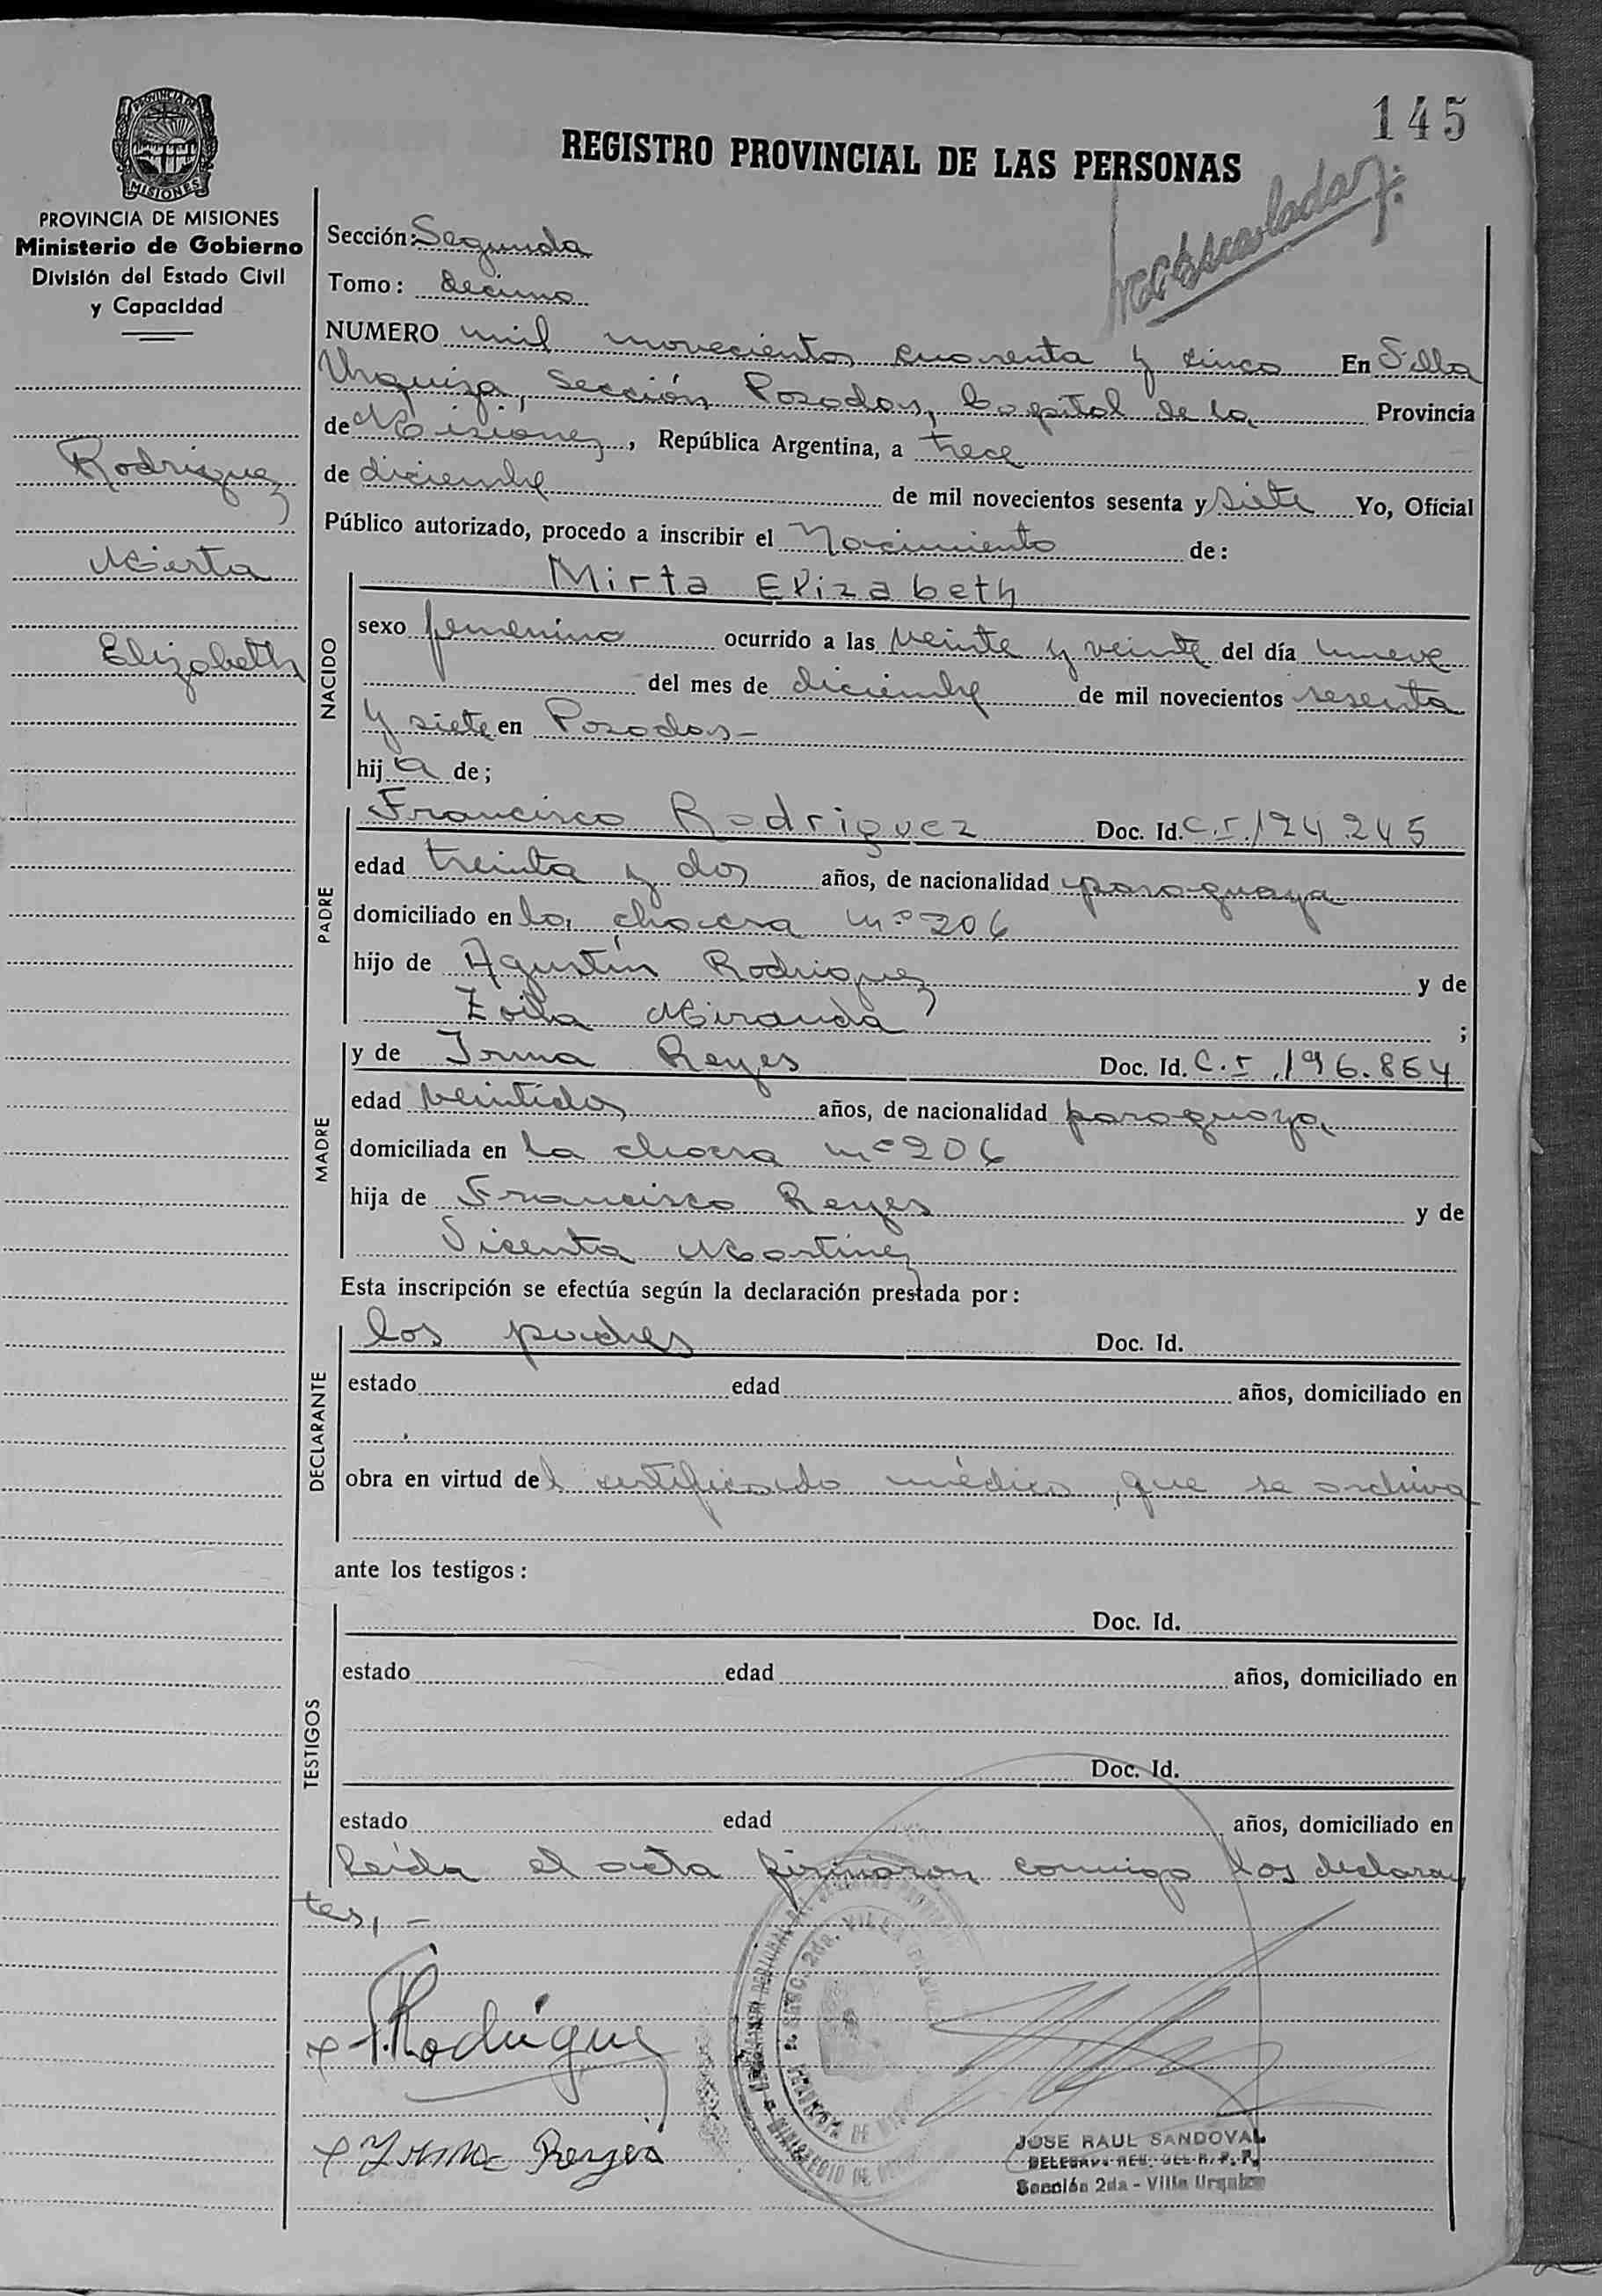 145
REGISTRO PROVINCIAL DE LAS PERSONAS
PROVINCIA DE MISIONES
Ministerio de Gobierno
División del Estado Civil
y Capacidad
Rodriguez
Mirta
Elizabeth
Sección: Segunda
Tomo: decimo
NUMERO mil novecientos cuarenta y cinco En Villa
Urquiza, sección Posadas, Capital de la Provincia
de Misiones, República Argentina, a trece
de diciembre de mil novecientos sesenta y siete Yo, Oficial
Público autorizado, procedo a inscribir el Nacimiento de:
NACIDO
Mirta Elizabeth
sexo femenino ocurrido a las veinte y veinte del día nueve
del mes de diciembre de mil novecientos sesenta
y siete en Posadas-
hij a de;
PADRE
Francisco Rodriguez Doc. Id. C.I. 124.245
edad treinta y dos años, de nacionalidad paraguaya
domiciliado en la chacra nº 206
hijo de Agustín Rodriguez y de
Zoila Miranda ;
MADRE
y de Irma Reyes Doc. Id. C.I. 196.864
edad veintidos años, de nacionalidad paraguaya
domiciliada en la chacra nº 206
hija de Francisco Reyes y de
Vicenta Martinez
Esta inscripción se efectúa según la declaración prestada por:
DECLARANTE
los padres Doc. Id.
estado edad años, domiciliado en
obra en virtud del certificado médico, que se archiva
ante los testigos:
TESTIGOS
Doc. Id.
estado edad años, domiciliado en
Doc. Id.
estado edad años, domiciliado en
Leída el acta firmaron conmigo los declaran
tes,-
x F. Rodrigue
x Yrma Reyes
JOSE RAUL SANDOVAL
DELEGADO REG. DEL R. P. P.
Sección 2da - Villa Urquiza